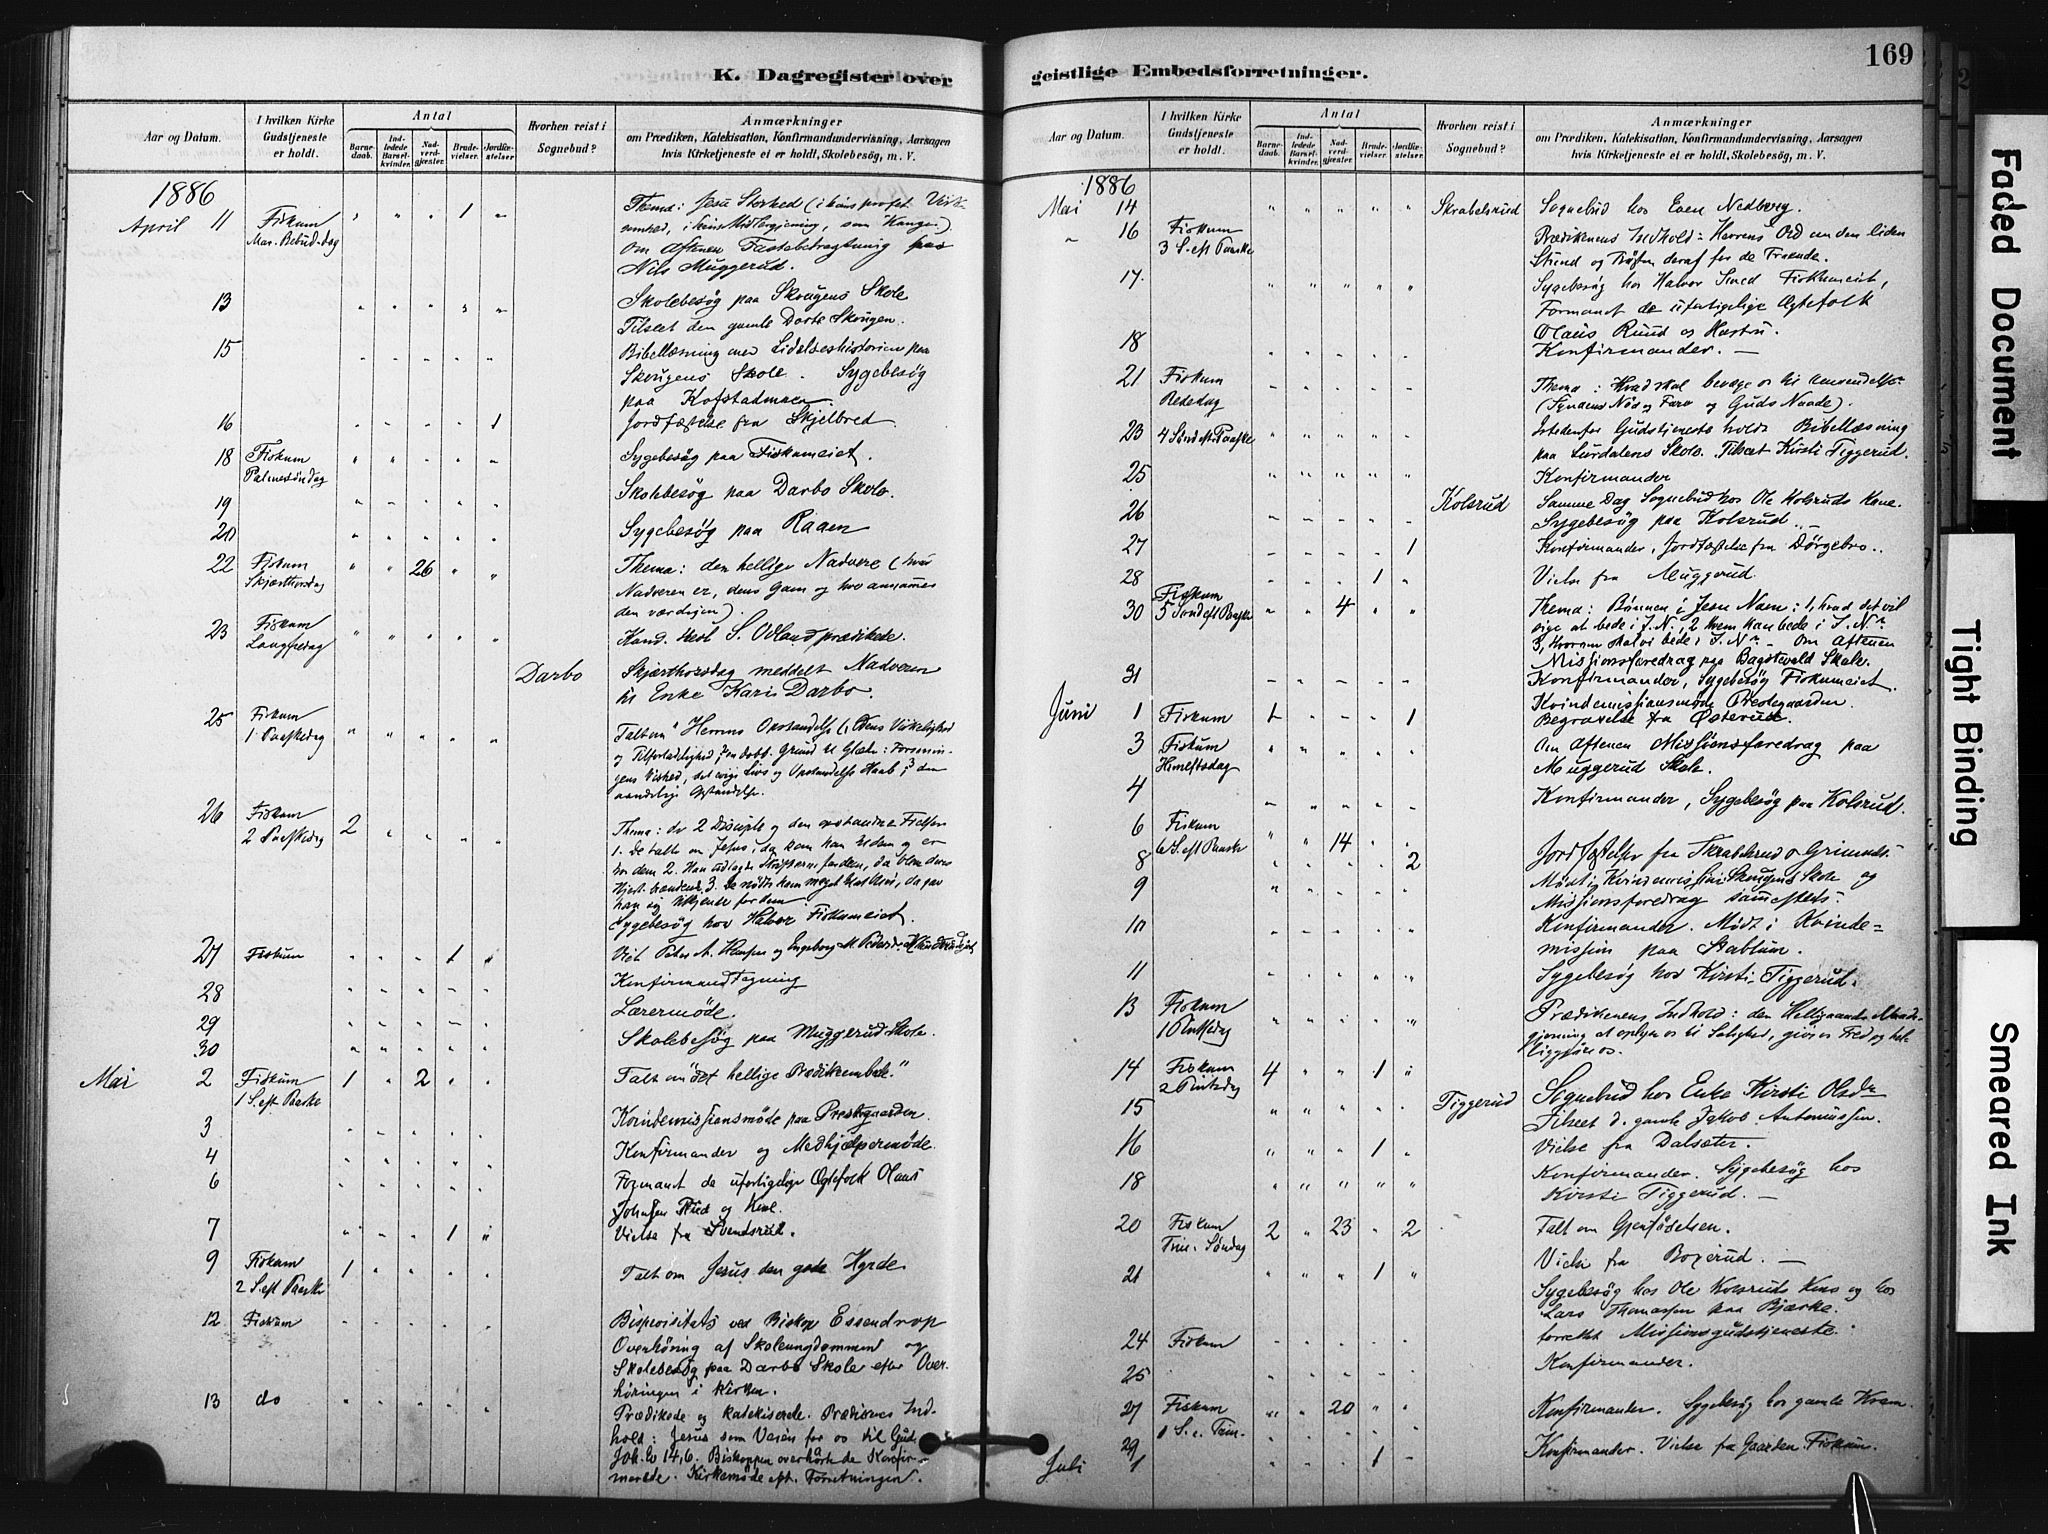 K. Dagregister over
Aar og Datum.
I hvilken Kirke Gudstjeneste er holdt.
Antal
Barne-daab.
Ind-ledede Barsel-kvinder.
Nad-verd-gjester.
Brude-vielser.
Jordfæ-stelser.
Hvorhen reist i Sognebud?
Anmærkninger
om Prædiken, Katekisation, Konfirmandundervisning, Aarsagen
hvis Kirketjeneste ei er holdt, Skolebesøg, m. V.
1886
April 11 Fiskum 1 Thema: Jesu Storhed (i hans profet. Virk-
Mar. Bebud. dag
Om Aftenen Fastebetragtning
Nils Muggerud.
13 Skolebesøg paa Skougens Skole
Tilseet den gamle Dorte Skougen.
15 Bibellæsning over Lidelseshistorien paa
Skougens Skole. Sygebesøg
paa Kofstadmoen
16 1 Jordfæstelse fra Skjelbred
18 Fiskum Sygebesøg paa Fiskumeiet.
Palmesøndag
19 Skolebesøg paa Darbo Skole.
20 Sygebesøg paa Raaen
22 Fiskum 26 Thema: den hellige Nadvere (hvad
Skjærthorsdag Nadveren er, dens Gavn og hvo annammer
den værdigen).
23 Fiskum Kand. theol S. Odland prædikede.
Langfredag
Darbo Skjærthorsdag meddelt Nadveren
til Enke Kari Darbo.
25 Fiskum Talt om Herrens Opstandelse (1, dens Virkelighed
1. Paaskedag og Tilforladelighed,
aandelige Opstandelse.
26 Fiskum 2 Thema: de 2 Disciple og den opstandne Frelser
2 Paaskedag 1. De talte om Jesus, da kom han til dem og er
hos dem 2. Han udlagde Skrifterne for dem, da blev deres
Hjert. brændende 3.
han sig tilkjende for dem.
Sygebesøg hos Halvor Fiskumeiet.
27 Fiskum 1
28 Konfirmand Tagning
29 Lærermøde.
30 Skolebesøg paa Muggerud Skole.
Mai 2 Fiskum 1 2 Talt om "det hellige Prædikembede."
1 S. eft Paaske
3 Kvindemissionsmøde paa Prestegaarden.
4 Konfirmander og Medhjælpermøde.
6 Formant de uforligelige Egtefolk Olaus
Johnsen Ruud og Kone.
7 1 Vielse fra Svendsrud.
9 Fiskum 1 Talt om Jesus den gode Hyrde
2 S. eft Paaske
12 Fiskum Bispevisitats ved Biskop Essendrop
Overhøring af Skoleungdommen og
Skolebesøg paa Darbo Skole efter Over-
høringen i Kirken.
13 do Prædikede og katekiserede. Prædikenes Ind-
hold: Jesus som Veien for os til Gud.
Joh. Ev 14,6. Biskoppen overhørte de Konfir-
merede. Kirkemøde eft. Forretningen.
geistlige Embedsforretninger.
169
Aar og Datum.
I hvilken Kirke Gudstjeneste er holdt.
Antal
Barne-daab.
Ind-ledede Barsel-kvinder.
Nad-verd-gjester.
Brude-vielser.
Jordfæ-stelser.
Hvorhen reist i Sognebud?
Anmærkninger
om Prædiken, Katekisation, Konfirmandundervisning, Aarsagen
hvis Kirketjeneste ei er holdt, Skolebesøg, m. V.
1886
Mai 14 Skrabelsrud Sognebud hos Even Nedberg.
16 Fiskum Prædikenens Indhold: Herrens Ord om den liden
3 S. eft Paaske Stund og Frugten deraf for de Troende.
17. Sygebesøg hos Halvor Smed Fiskumeiet,
Formanet de uforligelige Egtefolk
Olaus Ruud og Hustru.
18 Konfirmander.
21 Fiskum Thema: Hvad skal bevæge os til Omvendelse
Bededag (Syndens Nød og Fare og Guds Naade).
23 4 Sønd eft Paaske Istedenfor Gudstjeneste holdt Bibellæsning
paa Lurdalens Skole. Tilseet Kirsti Tiggerud.
25 Konfirmander
26 Kolsrud Samme Dag Sognebud hos Ole Kolsruds Kone.
Sygebesøg paa Kolsrud.
27 1 Konfirmander, Jordfæstelse fra Dørgebro.
28 1 Vielse fra Muggerud.
30 Fiskum 4 Thema: Bønnen i Jesu Navn: 1, hvad det vil
5 Sønd eft Paaske sige at bede i J. N., 2 hvem kan bede i J. N.
3, Hvorom skal vi bede i J. N. Om Aftenen
Missionsforedrag paa Bagstevold Skole.
31 Konfirmander, Sygebesøg Fiskumeiet.
Kvindemissionsmøde Prestegaarden.
Juni 1 Fiskum 1 1 Begravelse fra Østerud.
3 Fiskum Om Aftenen Missionsforedrag paa
Himelftsdag Muggerud Skole.
4 Konfirmander, Sygebesøg paa Kolsrud.
6 Fiskum 14
6 S. eft Paaske
8 2 Jordfæstelser fra Skrabelsrud og
9 Mødt i Kvindemission i Skougens Skole og
Missionsforedrag sammesteds.
10 Konfirmander. Mødt i Kvinde=
mission paa Stablum.
11 Sygebesøg hos Kirsti Tiggerud.
13 Fiskum Prædikenens Indhold: den Helligaands Naade-
1 Pintsedag gjerning at oplyse os til Salighed, give os Fred og hel-
liggjøre os.
14 Fiskum 4 1
2 Pintsdag
15 Tiggerud Sognebud hos Enke Kirsti Olsd
Tilseet d. gamle Jakob Antoniussen.
16 1 Vielse fra Dalsæter.
18 Konfirmander. Sygebesøg hos
Kirsti Tiggerud.
20 Fiskum 2 23 2 Talt om Gjenfødelsen.
Trin. Søndag
21 1 Vielse fra Bogerud.
Sygebesøg hos Ole Kolsruds Kone og hos
Lars Thomassen paa Bjerke.
24 Fiskum forrettet Missionsgudstjeneste.
25 Konfirmander.
27 Fiskum 20 Konfirmander. Sygebesøg hos gamle
1 S. e. Trin.
29 Konfirmander. Vielse fra Gaarden Fiskum.
Juli 1 1
Faded Document
Tight Binding
Smeared Ink